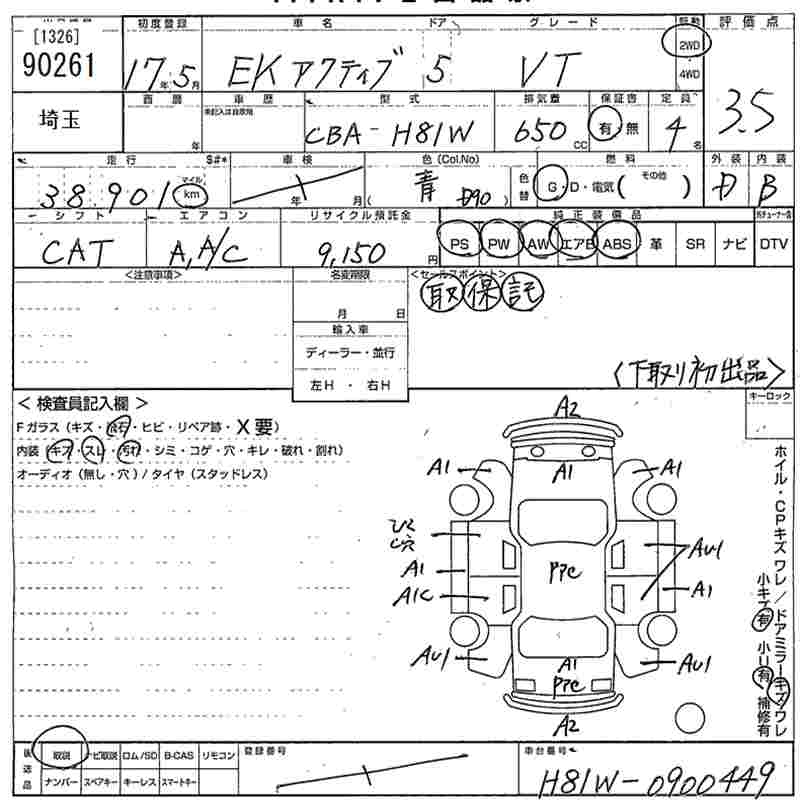 [1326]
90261
埼玉
初度登録 車名 ドア グレード 駆動 評価点
17年5月 EKアクティブ 5 VT 2WD
4WD
3.5
西暦 車歴 型式 排気量 保証書 定員
年 CBA-H81W 650cc 有・無 4名
走行 $#* 車検 色(Col.No) 燃料 外装 内装
38,901 マイル km 年 月 青 ( D90 ) 色替 G・D・電気( その他 ) D B
シフト エアコン リサイクル預託金 純正装備品
CAT A,A/C 9,150円 PS PW AW エアB ABS 革 SR ナビ DTV
<注意事項> 名変期限 <セールスポイント>
月 日 取 保 記
輸入車
ディーラー・並行
左H ・ 右H
<下取り初出品>
キーロック
<検査員記入欄>
Fガラス(キズ・飛石・ヒビ・リペア跡・X要)
内装(キズ・スレ・汚れ・シミ・コゲ・穴・キレ・破れ・割れ)
オーディオ(無し・穴)/タイヤ(スタッドレス)
A2
A1 A1 A1
ひく
い穴
AU1
A1 PPC A1
A1C
AU1 A1 AU1
PPC
A2
ホイル・CPキズ ワレ/ドアミラーキズ/ワレ
小キズ有 小U有 補修有
後送品 取説 ナビ取説 ロム/SD B-CAS リモコン 登録番号 車台番号
ナンバー スペアキー キーレス スマートキー H81W-0900449